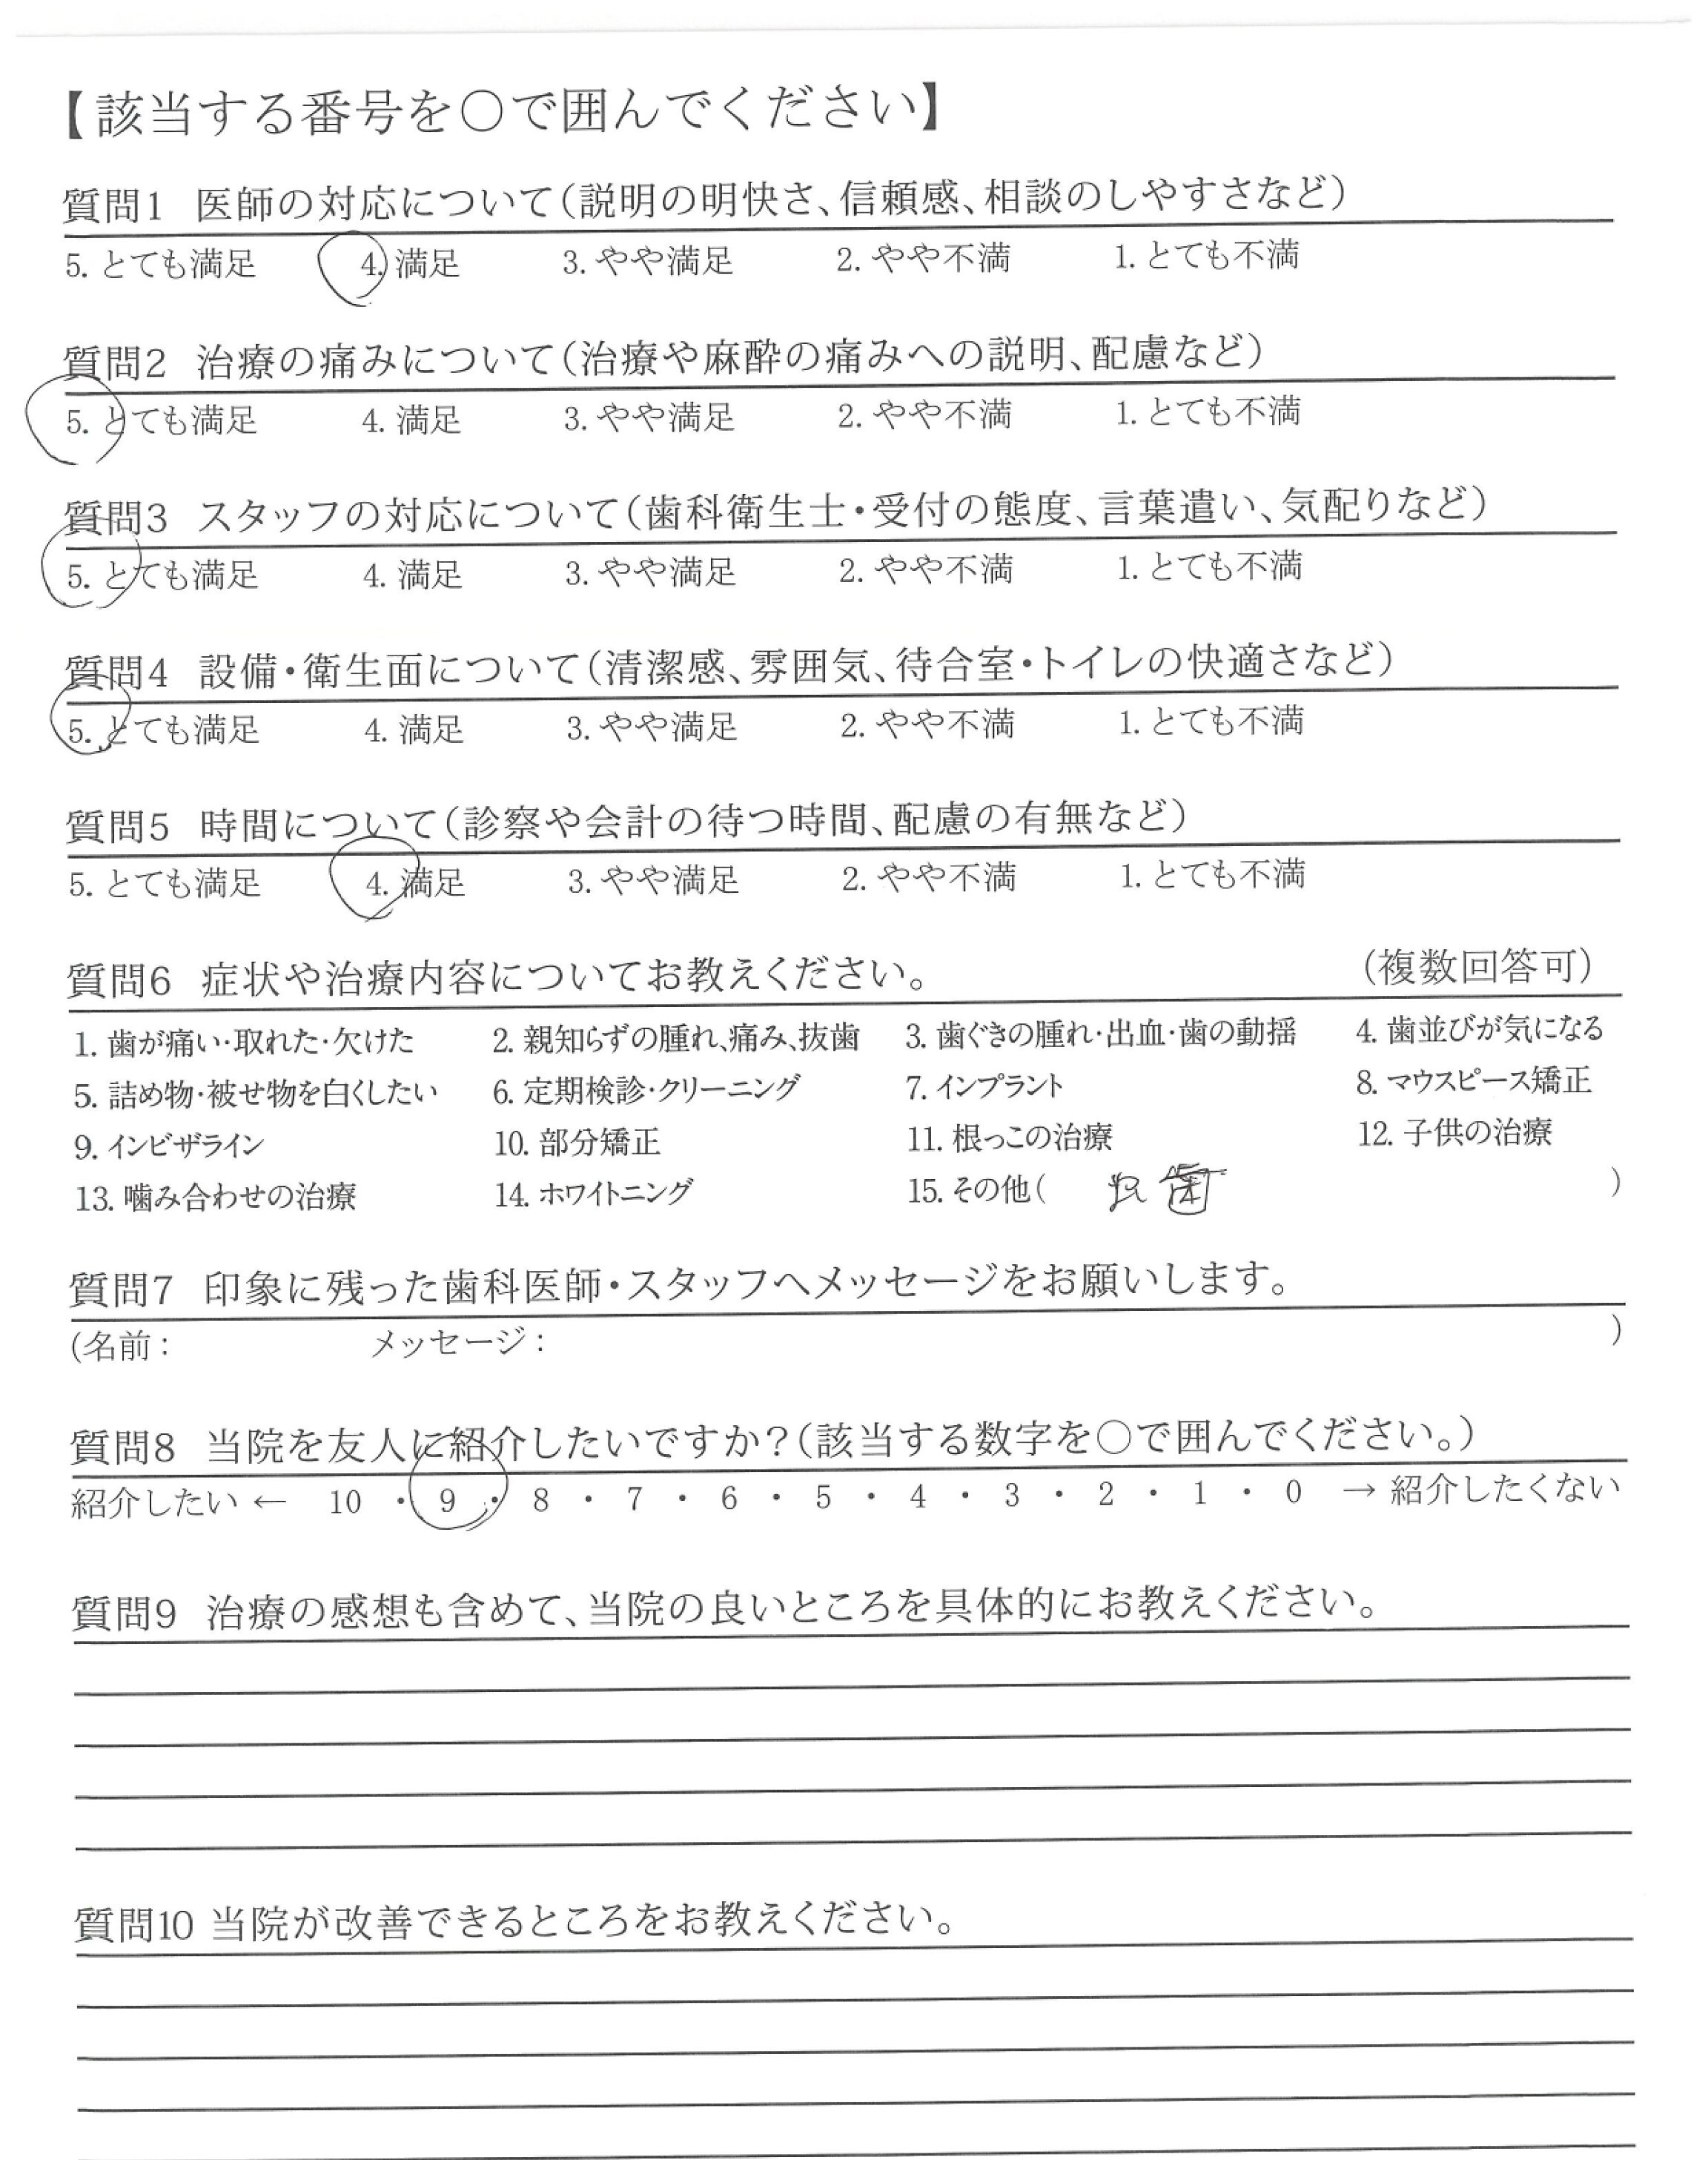 【該当する番号を〇で囲んでください】
質問1 医師の対応について(説明の明快さ、信頼感、相談のしやすさなど)
5. とても満足 4. 満足 3. やや満足 2. やや不満 1. とても不満
質問2 治療の痛みについて(治療や麻酔の痛みへの説明、配慮など)
5. とても満足 4. 満足 3. やや満足 2. やや不満 1. とても不満
質問3 スタッフの対応について(歯科衛生士・受付の態度、言葉遣い、気配りなど)
5. とても満足 4. 満足 3. やや満足 2. やや不満 1. とても不満
質問4 設備・衛生面について(清潔感、雰囲気、待合室・トイレの快適さなど)
5. とても満足 4. 満足 3. やや満足 2. やや不満 1. とても不満
質問5 時間について(診察や会計の待つ時間、配慮の有無など)
5. とても満足 4. 満足 3. やや満足 2. やや不満 1. とても不満
質問6 症状や治療内容についてお教えください。 (複数回答可)
1. 歯が痛い・取れた・欠けた 2. 親知らずの腫れ、痛み、抜歯 3. 歯ぐきの腫れ・出血・歯の動揺 4. 歯並びが気になる
5. 詰め物・被せ物を白くしたい 6. 定期検診・クリーニング 7. インプラント 8. マウスピース矯正
9. インビザライン 10. 部分矯正 11. 根っこの治療 12. 子供の治療
13. 噛み合わせの治療 14. ホワイトニング 15. その他( 歯 )
質問7 印象に残った歯科医師・スタッフへメッセージをお願いします。
(名前: メッセージ: )
質問8 当院を友人に紹介したいですか?(該当する数字を〇で囲んでください。)
紹介したい ← 10 ・ 9 ・ 8 ・ 7 ・ 6 ・ 5 ・ 4 ・ 3 ・ 2 ・ 1 ・ 0 → 紹介したくない
質問9 治療の感想も含めて、当院の良いところを具体的にお教えください。
質問10 当院が改善できるところをお教えください。